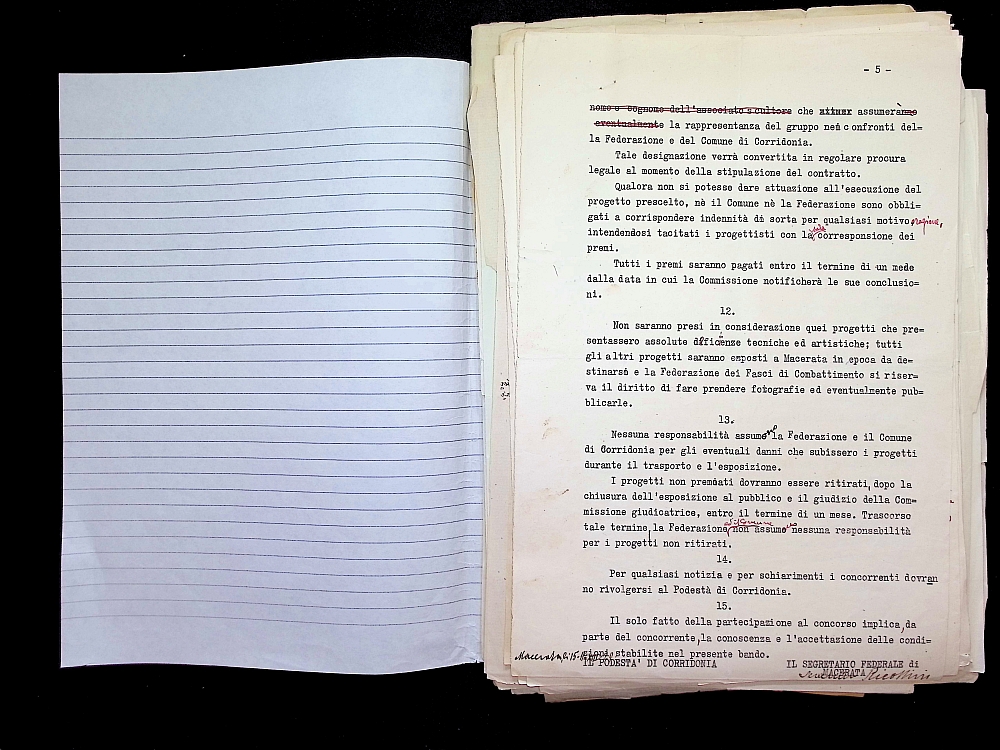 - 5 -
nome e cognome dell'associato scultore che assumeranno
eventualmente la rappresentanza del gruppo nei confronti del=
la Federazione e del Comune di Corridonia.
Tale designazione verrà convertita in regolare procura
legale al momento della stipulazione del contratto.
Qualora non si potesse dare attuazione all'esecuzione del
progetto prescelto, nè il Comune nè la Federazione sono obbli=
gati a corrispondere indennità di sorta per qualsiasi motivo
intendendosi tacitati i progettisti con la sola corresponsione dei
premi.
Tutti i premi saranno pagati entro il termine di un mede
dalla data in cui la Commissione notificherà le sue conclusio=
ni.
12.
Non saranno presi in considerazione quei progetti che pre=
sentassero assolute deficienze tecniche ed artistiche; tutti
gli altri progetti saranno esposti a Macerata in epoca da de=
stinarsi e la Federazione dei Fasci di Combattimento si riser=
va il diritto di fare prendere fotografie ed eventualmente pub=
blicarle.
13.
Nessuna responsabilità assumono la Federazione e il Comune
di Corridonia per gli eventuali danni che subissero i progetti
durante il trasporto e l'esposizione.
I progetti non premiati dovranno essere ritirati, dopo la
chiusura dell'esposizione al pubblico e il giudizio della Com=
missione giudicatrice, entro il termine di un mese. Trascorso
tale termine, la Federazione ed il Comune non assumono nessuna responsabilità
per i progetti non ritirati.
14.
Per qualsiasi notizia e per schiarimenti i concorrenti dovran
no rivolgersi al Podestà di Corridonia.
15.
Il solo fatto della partecipazione al concorso implica, da
parte del concorrente, la conoscenza e l'accettazione delle condi=
zioni stabilite nel presente bando.
Macerata, li 15
IL PODESTA' DI CORRIDONIA IL SEGRETARIO FEDERALE di
MACERATA